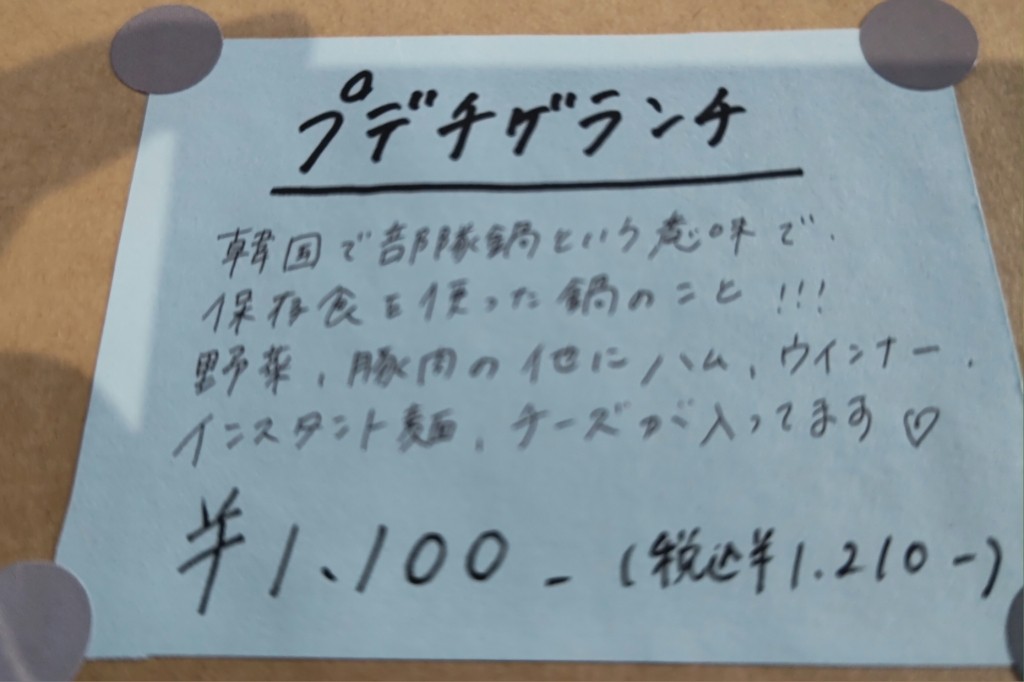 プデチゲランチ
韓国で部隊鍋という意味で、
保存食を使った鍋のこと!!!
野菜、豚肉の他にハム、ウインナー、
インスタント麺、チーズが入ってます♡
¥1,100- (税込¥1,210-)